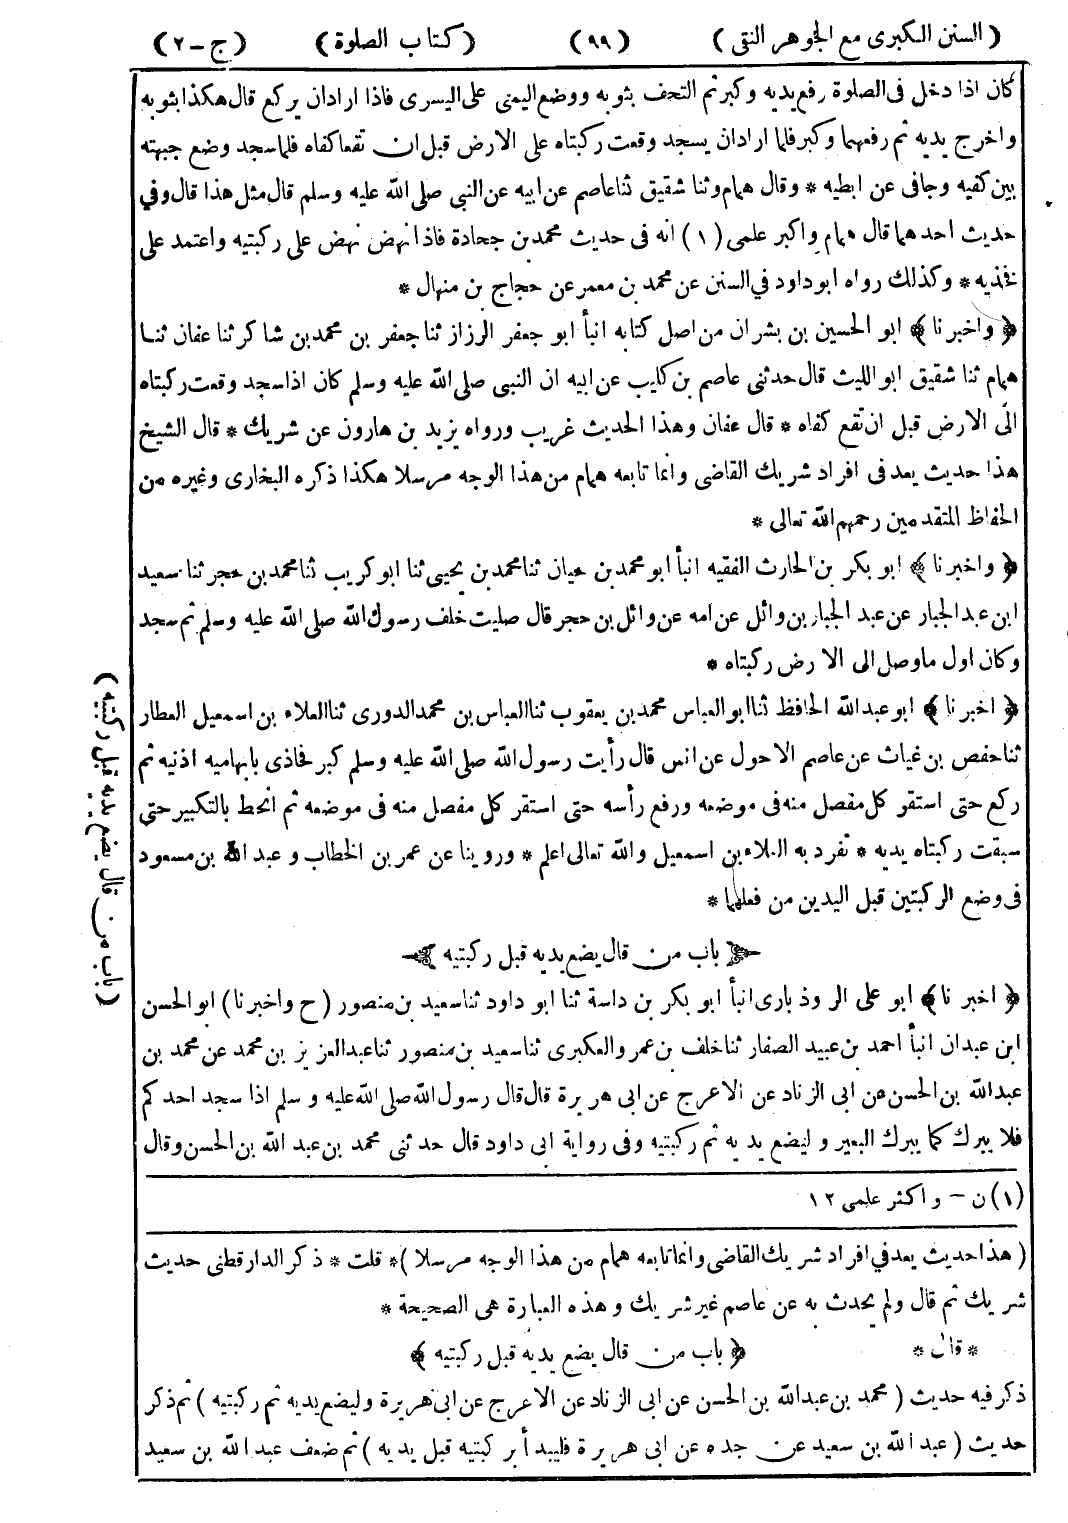 (السنن الكبرى مع الجوهر النقى) (٩٩) (كتاب الصلوة) (ج-٢)
كان اذا دخل فى الصلوة رفع يديه وكبر ثم التحف بثوبه ووضع اليمنى على اليسرى فاذا ارادان يركع قال هكذا بثوبه
واخرج يديه ثم رفعهما وكبر فلما ارادان يسجد وقعت ركبتاه على الارض قبل ان تقعا كفاه فلما سجد وضع جبهته
بين كفيه وجافى عن ابطيه * وقال همام وثنا شقيق ثنا عاصم عن ابيه عن النبى صلى الله عليه وسلم قال مثل هذا قال وفي
حديث احدهما قال همام واكبر علمى (١) انه فى حديث محمد بن جحادة فاذا نهض نهض على ركبتيه واعتمد على
فخذيه * وكذلك رواه ابو داود في السنن عن محمد بن معمر عن حجاج بن منهال *
﴿ واخبرنا ﴾ ابو الحسين بن بشران من اصل كتابه انبأ ابو جعفر الرزاز ثنا جعفر بن محمد بن شاكر ثنا عفان ثنا
همام ثنا شقيق ابو الليث قال حدثنى عاصم بن كليب عن ابيه ان النبى صلى الله عليه وسلم كان اذا سجد وقعت ركبتاه
الى الارض قبل ان تقع كفاه * قال عفان وهذا الحديث غريب ورواه يزيد بن هارون عن شريك * قال الشيخ
هذا حديث يعد فى افراد شريك القاضى وانما تابعه همام من هذا الوجه مرسلا هكذا ذكره البخارى وغيره من
الحفاظ المتقدمين رحمهم الله تعالى *
﴿ واخبرنا ﴾ ابو بكر بن الحارث الفقيه انبأ ابو محمد بن حيان ثنا محمد بن يحيى ثنا ابو كريب ثنا محمد بن حجر ثنا سعيد
ابن عبد الجبار عن عبد الجبار بن وائل عن امه عن وائل بن حجر قال صليت خلف رسول الله صلى الله عليه وسلم ثم سجد
وكان اول ما وصل الى الارض ركبتاه *
﴿ اخبرنا ﴾ ابو عبد الله الحافظ ثنا ابو العباس محمد بن يعقوب ثنا العباس بن محمد الدورى ثنا العلاء بن اسمعيل العطار
ثنا حفص بن غياث عن عاصم الاحول عن انس قال رأيت رسول الله صلى الله عليه وسلم كبر فحاذى بابهاميه اذنيه ثم
ركع حتى استقر كل مفصل منه فى موضعه ورفع رأسه حتى استقر كل مفصل منه فى موضعه ثم انحط بالتكبير حتى
سبقت ركبتاه يديه * تفرد به العلاء بن اسمعيل والله تعالى اعلم * وروينا عن عمر بن الخطاب وعبد الله بن مسعود
فى وضع الركبتين قبل اليدين من فعلهما *
باب من قال يضع يديه قبل ركبتيه
﴿ اخبرنا ﴾ ابو على الروذبارى انبأ ابو بكر بن داسة ثنا ابو داود ثنا سعيد بن منصور (ح واخبرنا) ابو الحسن
ابن عبدان انبأ احمد بن عبيد الصفار ثنا خلف بن عمرو العكبرى ثنا سعيد بن منصور ثنا عبد العزيز بن محمد عن محمد بن
عبد الله بن الحسن عن ابى الزناد عن الاعرج عن ابى هريرة قال قال رسول الله صلى الله عليه وسلم اذا سجد احدكم
فلا يبرك كما يبرك البعير وليضع يديه ثم ركبتيه وفى رواية ابى داود قال حدثنى محمد بن عبد الله بن الحسن وقال
(باب من قال يضع يديه قبل ركبتيه)
(١) ن - واكثر علمى ١٢
(هذا حديث يعد في افراد شريك القاضى وانما تابعه همام من هذا الوجه مرسلا) * قلت * ذكر الدارقطنى حديث
شريك ثم قال ولم يحدث به عن عاصم غير شريك وهذه العبارة هى الصحيحة *
* قال * ﴿ باب من قال يضع يديه قبل ركبتيه ﴾
ذكر فيه حديث (محمد بن عبد الله بن الحسن عن ابى الزناد عن الاعرج عن ابى هريرة وليضع يديه ثم ركبتيه) ثم ذكر
حديث (عبد الله بن سعيد عن جده عن ابى هريرة فليبدأ بركبتيه قبل يديه) ثم ضعف عبد الله بن سعيد